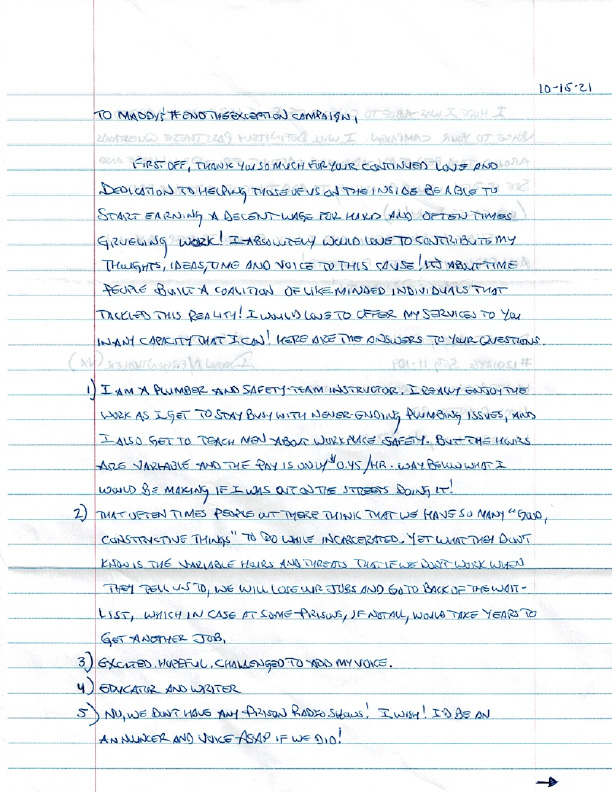 10-15-21
TO MADDY'S #ENDTHEEXCEPTION CAMPAIGN,
FIRST OFF, THANK YOU SO MUCH FOR YOUR CONTINUED LOVE AND
DEDICATION TO HELPING THOSE OF US ON THE INSIDE BE ABLE TO
START EARNING A DECENT WAGE FOR HARD AND OFTEN TIMES
GRUELING WORK! I ABSOLUTELY WOULD LOVE TO CONTRIBUTE MY
THOUGHTS, IDEAS, TIME AND VOICE TO THIS CAUSE! IT'S ABOUT TIME
PEOPLE BUILT A COALITION OF LIKE MINDED INDIVIDUALS THAT
TACKLED THIS REALITY! I WOULD LOVE TO OFFER MY SERVICES TO YOU
IN ANY CAPACITY THAT I CAN! HERE ARE THE ANSWERS TO YOUR QUESTIONS.
1) I AM A PLUMBER AND SAFETY TEAM INSTRUCTOR. I REALLY ENJOY THE
WORK AS I GET TO STAY BUSY WITH NEVER-ENDING PLUMBING ISSUES, AND
I ALSO GET TO TEACH MEN ABOUT WORKPLACE SAFETY. BUT THE HOURS
ARE VARIABLE AND THE PAY IS ONLY $0.45/HR. WAY BELOW WHAT I
WOULD BE MAKING IF I WAS OUT ON THE STREETS DOING IT!
2) THAT OFTEN TIMES PEOPLE OUT THERE THINK THAT WE HAVE SO MANY "GOOD,
CONSTRUCTIVE THINGS" TO DO WHILE INCARCERATED. YET WHAT THEY DON'T
KNOW IS THE VARIABLE HOURS AND THREATS THAT IF WE DON'T WORK WHEN
THEY TELL US TO, WE WILL LOSE OUR JOBS AND GO TO BACK OF THE WAIT-
LIST, WHICH IN CASE AT SOME PRISONS, IF NOT ALL, WOULD TAKE YEARS TO
GET ANOTHER JOB.
3) EXCITED. HOPEFUL. CHALLENGED TO ADD MY VOICE.
4) EDUCATOR AND WRITER
5) NO, WE DON'T HAVE ANY PRISON RADIO SHOWS! I WISH! I'D BE AN
ANNUNCER AND VOICE ASAP IF WE DID!
→